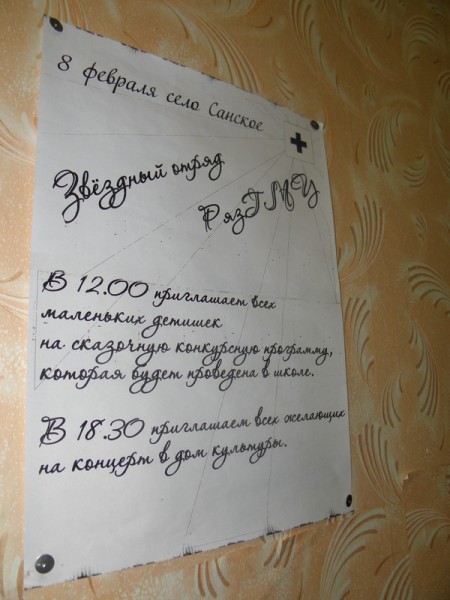 8 февраля село Санское
Звёздный отряд
РязГМУ
В 12.00 приглашает всех
маленьких детишек
на сказочную конкурсную программу,
которая будет проведена в школе.
В 18.30 приглашаем всех желающих
на концерт в дом культуры.